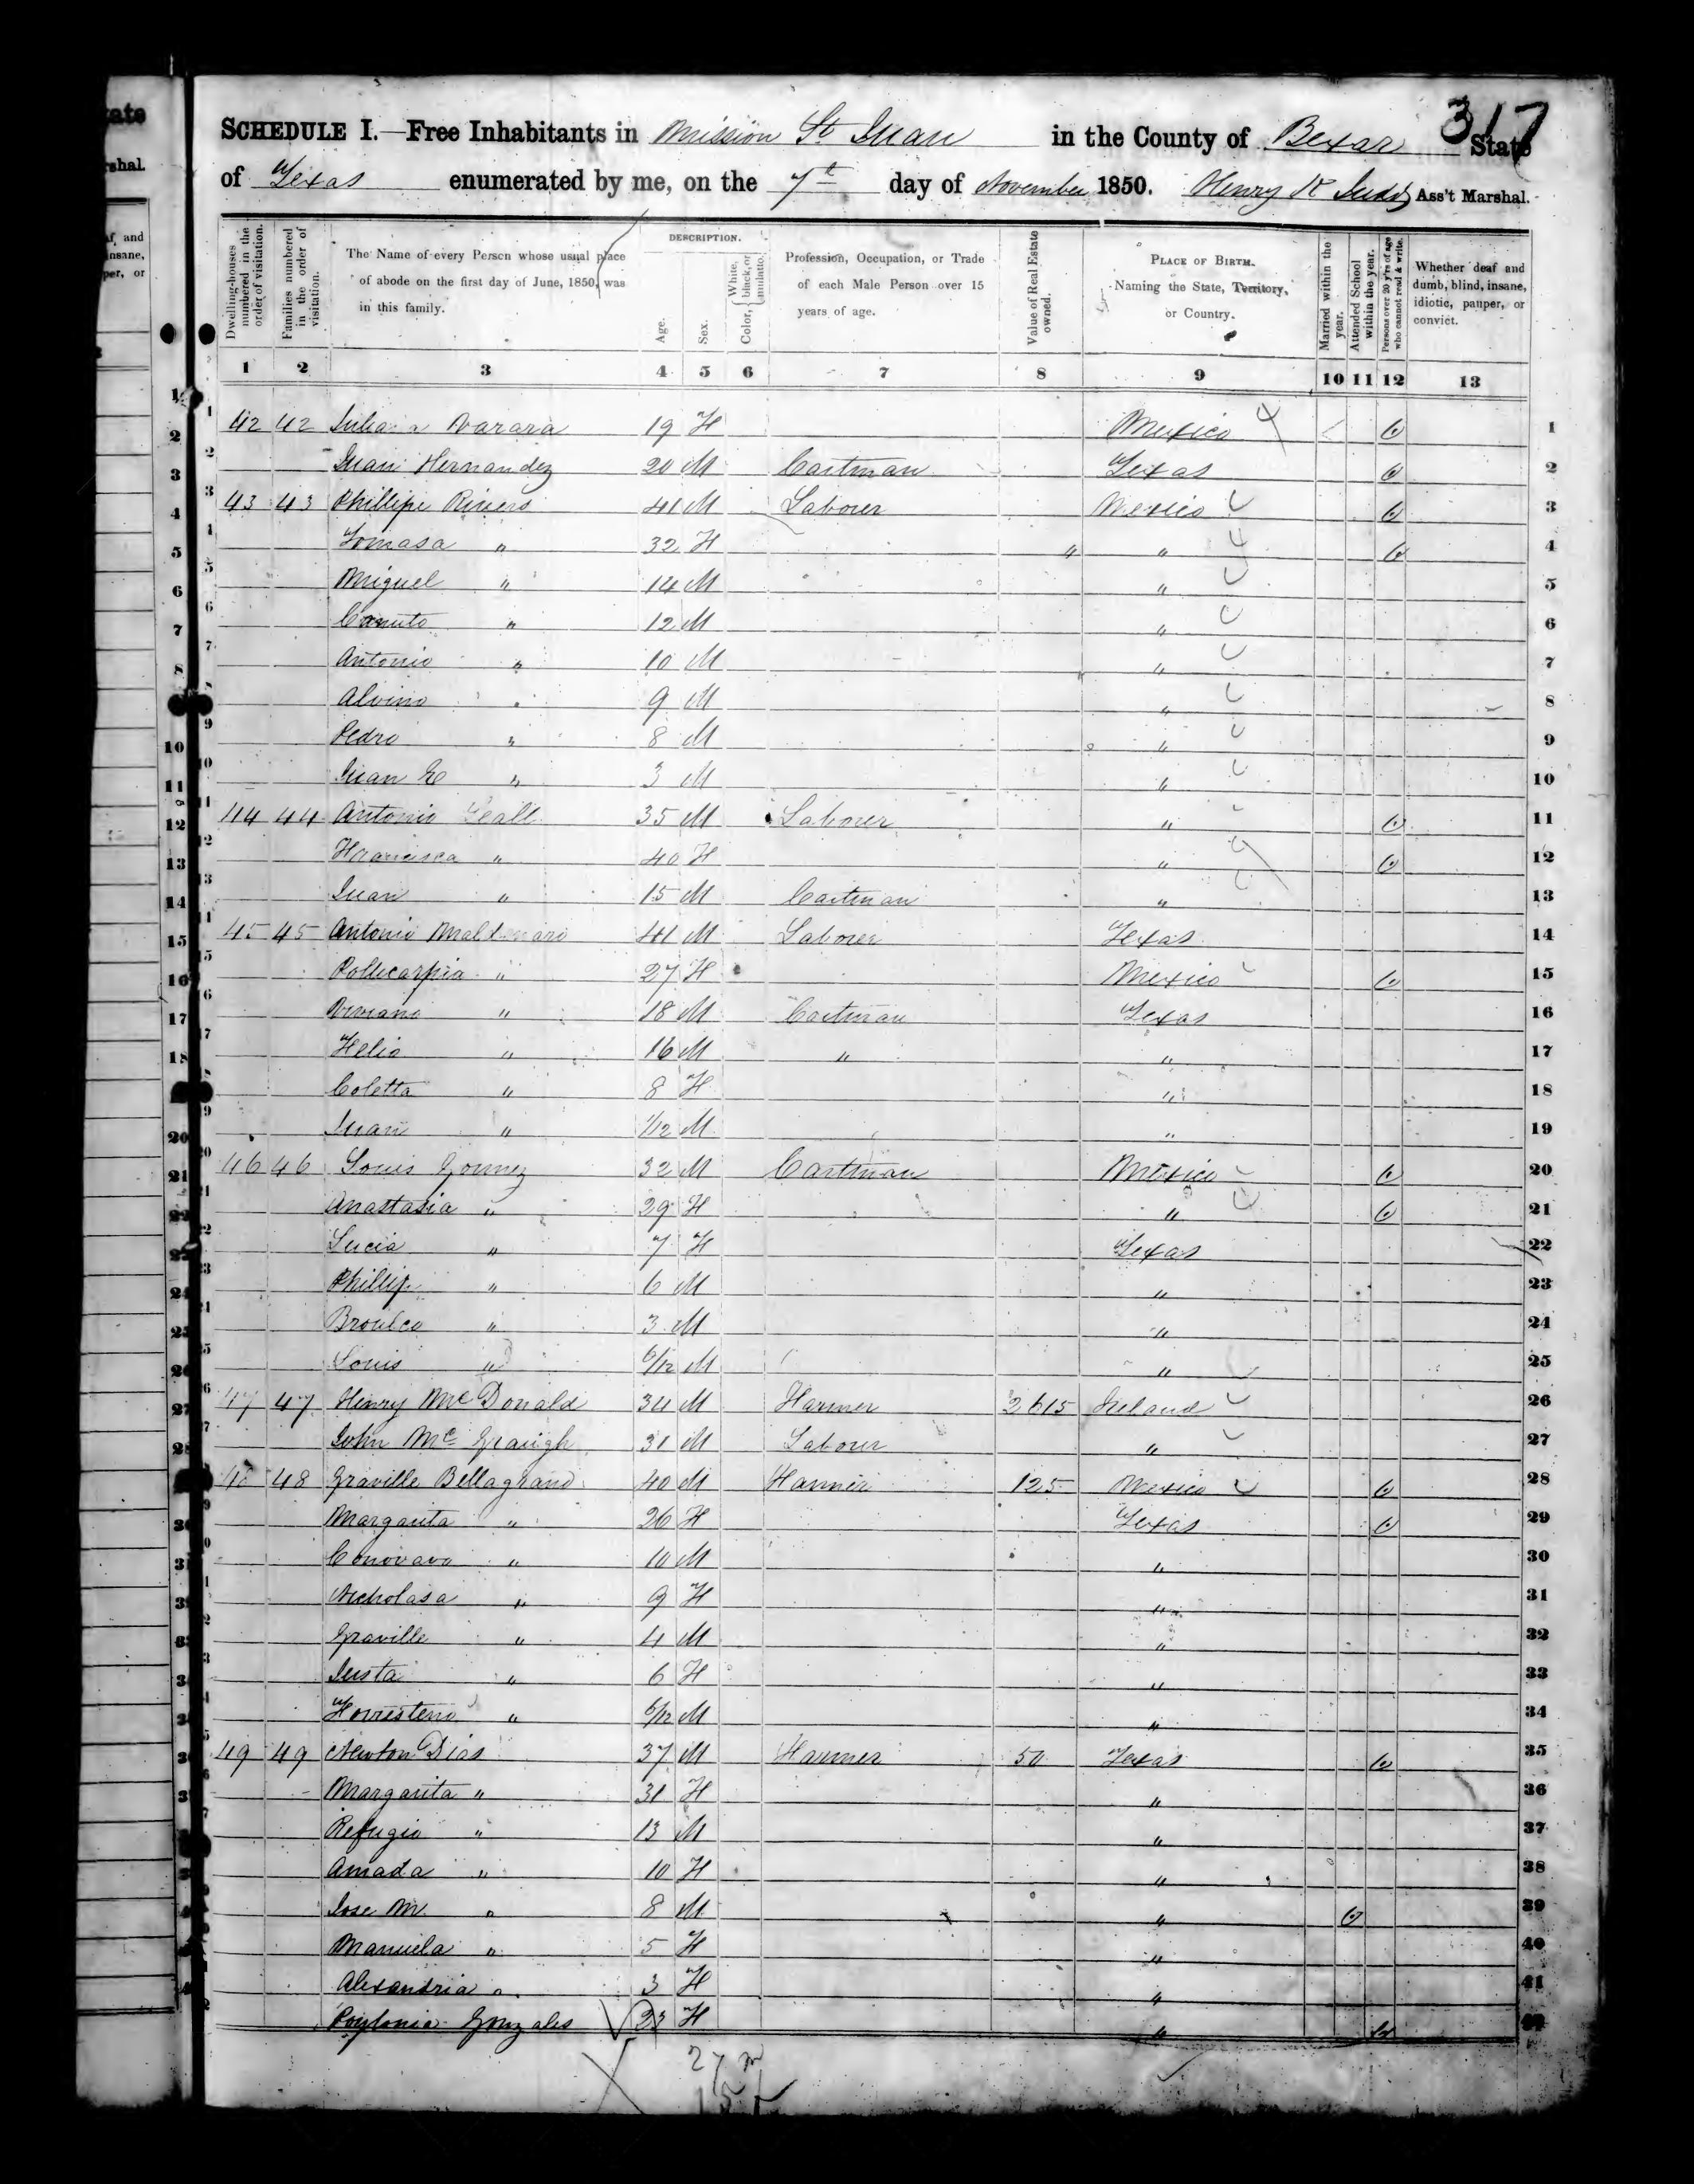 317
SCHEDULE I.—Free Inhabitants in Mission St Juan in the County of Bexar State
of Texas enumerated by me, on the 7th day of November 1850. Henry K Judd Ass't Marshal.
Dwelling-houses numbered in the order of visitation.
Families numbered in the order of visitation.
The Name of every Person whose usual place of abode on the first day of June, 1850, was in this family.
DESCRIPTION.
Age.
Sex.
Color, { White, black, or mulatto.
Profession, Occupation, or Trade of each Male Person over 15 years of age.
Value of Real Estate owned.
PLACE OF BIRTH.
Naming the State, Territory, or Country.
Married within the year.
Attended School within the year.
Persons over 20 y'rs of age who cannot read & write.
Whether deaf and dumb, blind, insane, idiotic, pauper, or convict.
1 2 3 4 5 6 7 8 9 10 11 12 13
1 42 42 Varara 19 F Mexico 1
2 Juan Hernandez 20 M Cartman Texas 2
3 43 43 Phillipe Rivers 41 M Labourer Mexico 3
Tomasa " 32 F " " 4
5 Miguel " 14 M " 5
6 Canuto " 12 M " 6
7 Antonio " 10 M " 7
Alvino " 9 M " 8
9 Pedro " 8 M " 9
10 Juan " 3 M " 10
11 44 44 Antonio 35 M Laborer " 11
12 Francisca " 40 F " 12
13 Juan " 15 M Cartman " 13
45 45 Antonio 41 M Laborer Texas 14
15 Pollicarpia " 27 F Mexico 15
16 Viviano " 18 M Cartman Texas 16
17 Felio " 16 M " " 17
Coletta " 8 F " 18
19 Juan " 1/12 M " 19
20 46 46 Louis Gomez 32 M Cartman Mexico 20
21 Anastasia " 29 F " 21
22 Lucia " 7 F Texas 22
23 Phillip " 6 M " 23
Broulco " 3 M " 24
25 Louis " 6/12 M " 25
26 47 47 Henry McDonald 34 M Farmer 2615 Ireland 26
27 John Mc 31 M Labourer " 27
48 48 Graville Bellagrand 40 M Farmer 125 Mexico 28
29 Margarita " 26 F Texas 29
Conovavo " 10 M " 30
Nicholasa " 9 F " 31
Graville " 4 M " 32
Justa " 6 F " 33
" 6/12 M " 34
49 49 Newton Dias 37 M Farmer 50 Texas 35
Margarita " 31 F " 36
Refugio " 13 M " 37
Amada " 10 F " 38
Jose M " 8 M " 39
Manuela " 5 F " 40
Alexandria " 3 F " 41
Gonzales 23 F " 42
27 m
15 f